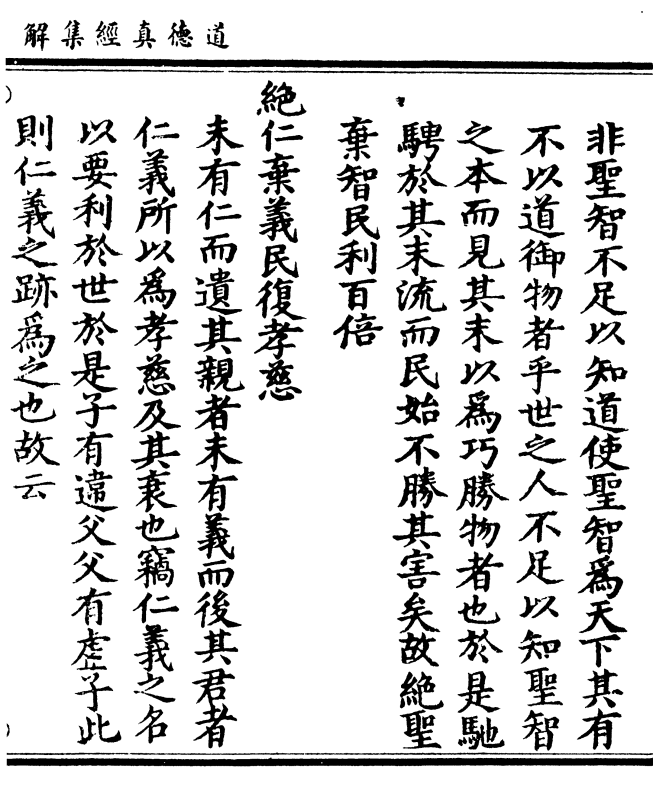 道德真經集解
非聖智不足以知道使聖智爲天下其有
不以道御物者乎世之人不足以知聖智
之本而見其末以爲巧勝物者也於是馳
騁於其末流而民始不勝其害矣故絕聖
棄智民利百倍
絕仁棄義民復孝慈
未有仁而遺其親者未有義而後其君者
仁義所以爲孝慈及其衰也竊仁義之名
以要利於世於是子有違父父有虐子此
則仁義之跡爲之也故云